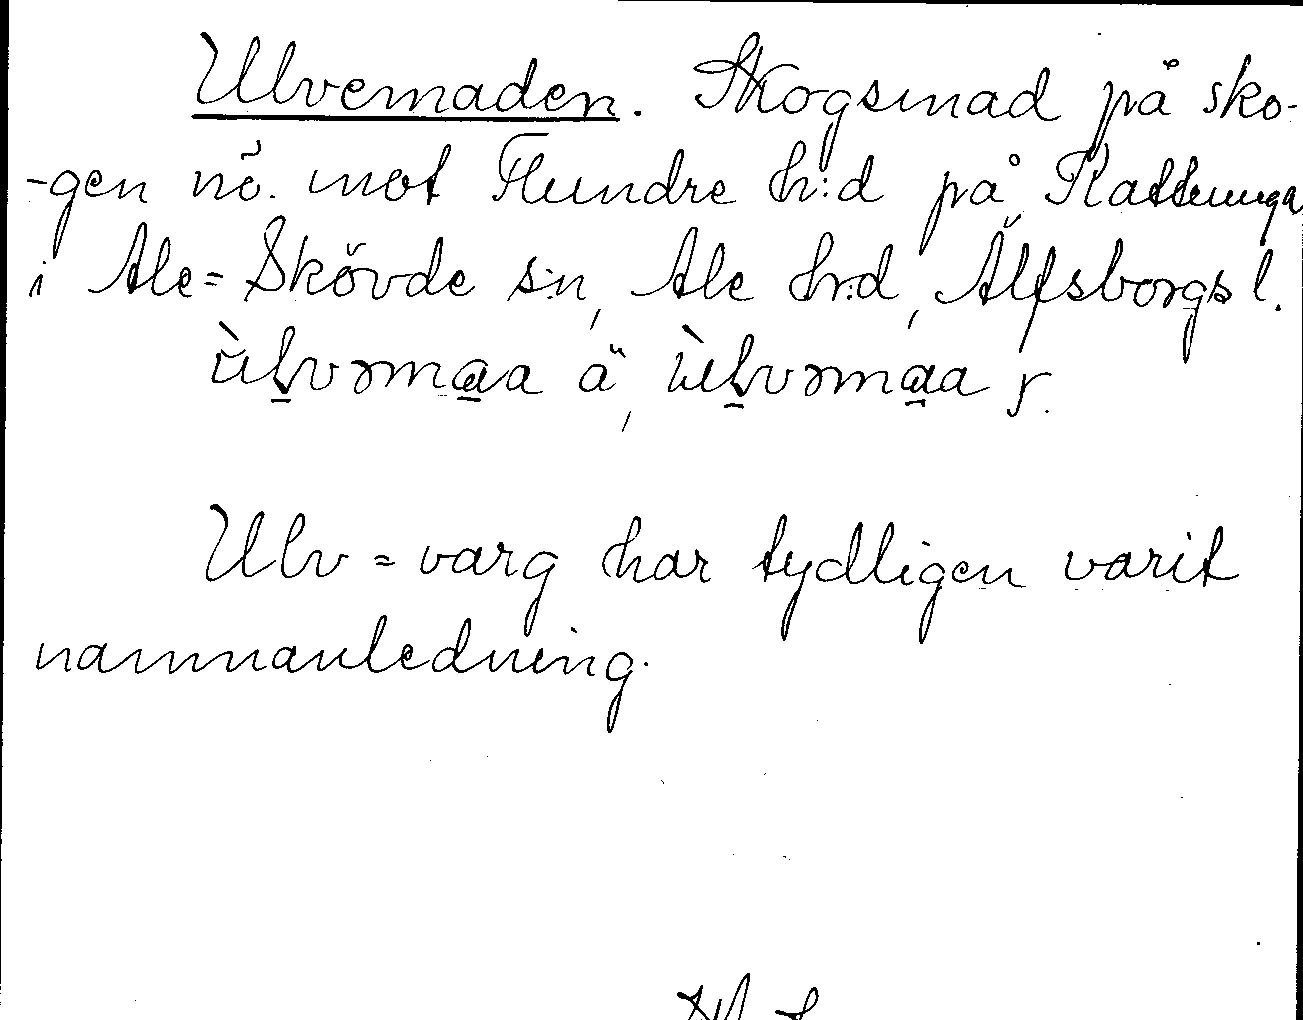 Ulvemaden. Skogsmad på sko-
-gen nö. mot Flundre h:d på Kattunga
i Ale=Skövde s:n, Ale h:d, Älfsborgs l.
ùḻvəma̱a ä, ùḻvəma̱a r.
Ulv = varg har tydligen varit
namnanledning.